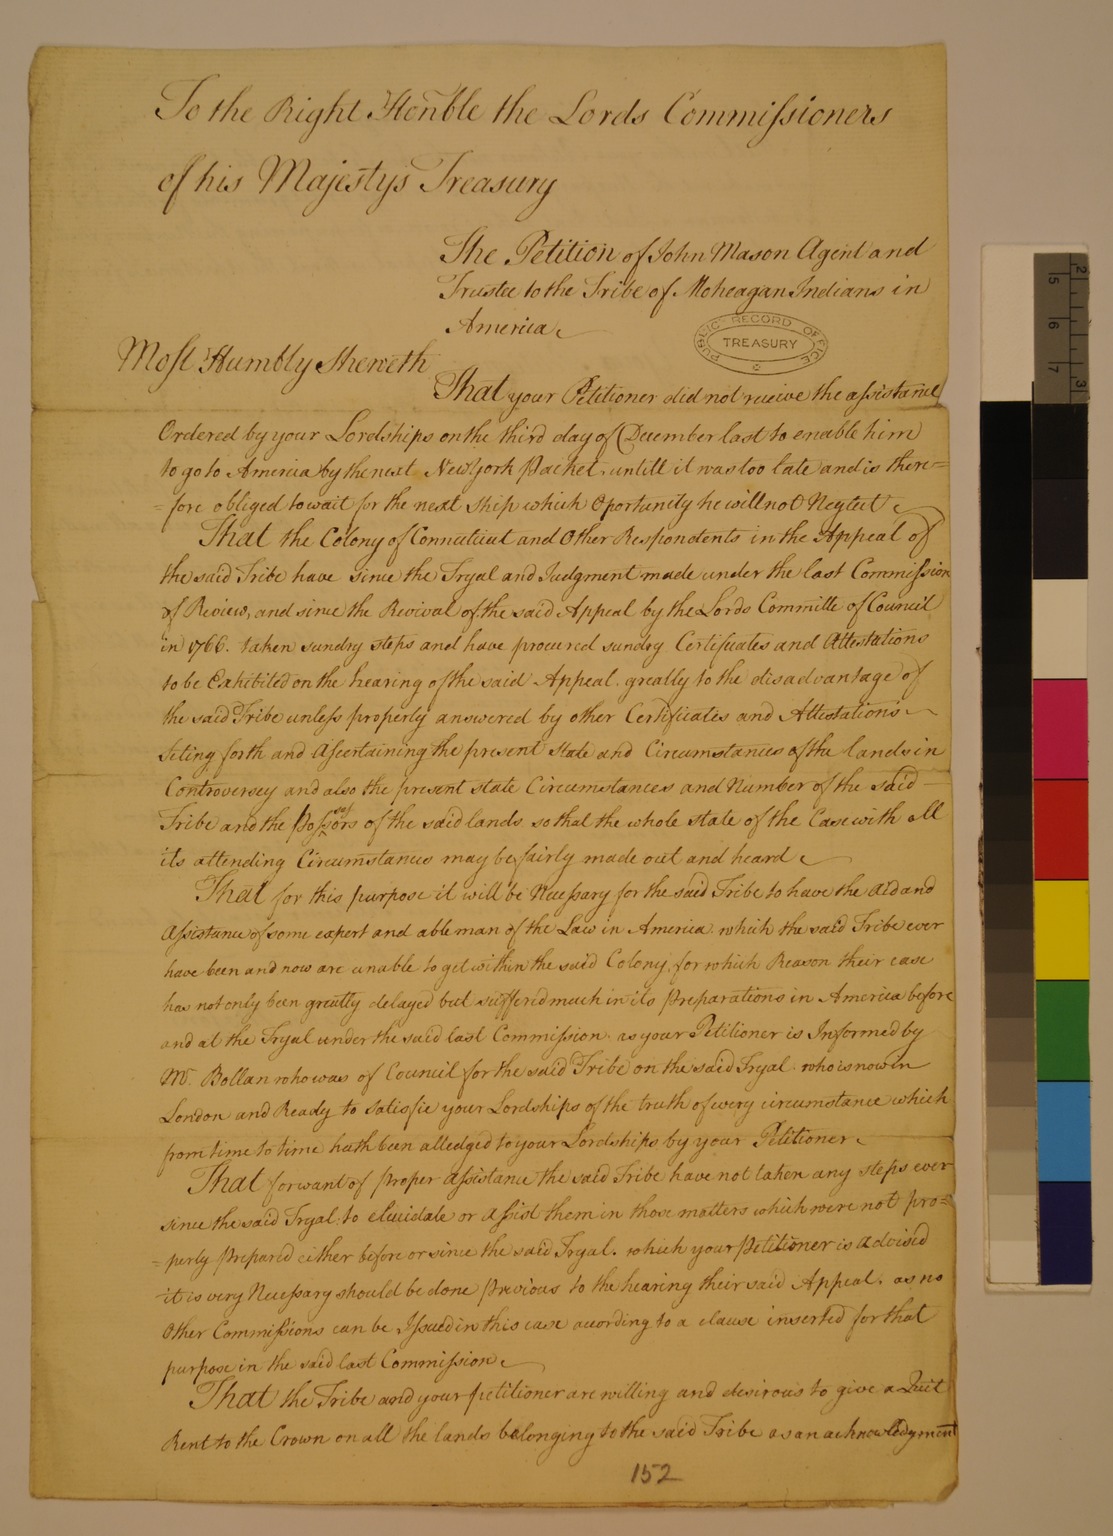 To the Right Honble the Lords Commissioners
of his Majestys Treasury
The Petition of John Mason Agent and
Trustee to the Tribe of Moheagan Indians in
America
PUBLIC RECORD OFFICE
TREASURY
Most Humbly Sheweth
That your Petitioner did not receive the assistance
Ordered by your Lordships on the third day of December last to enable him
to go to America by the next New York Packet, untill it was too late and is there=
=fore obliged to wait for the next ship which Oportunity he will not Neglect
That the Colony of Connecticut and Other Respondents in the Appeal of
the said Tribe have since the Tryal and Judgment made under the last Commission
of Review, and since the Revival of the said Appeal by the Lords Committe of Council
in 1766. taken sundry steps and have procured sundry Certificates and Attestations
to be Exhibited on the hearing of the said Appeal. greatly to the disadvantage of
the said Tribe unless properly answered by other Certificates and Attestations
seting forth and Ascertaining the present state and Circumstances of the lands in
Controversey and also the present state Circumstances and Number of the said
Tribe and the Possessors of the said lands so that the whole state of the Case with all
its attending Circumstances may be fairly made out and heard
That for this purpose it will be Necessary for the said Tribe to have the aid and
Assistance of some expert and able man of the Law in America. which the said Tribe ever
have been and now are unable to get within the said Colony, for which Reason their case
has not only been greatly delayed but suffered much in its preparations in America before
and at the Tryal under the said last Commission. as your Petitioner is Informed by
Mr. Bollan who was of Council for the said Tribe on the said Tryal. who is now in
London and Ready to satisfie your Lordships of the truth of every circumstance which
from time to time hath been alledged to your Lordships by your Petitioner
That for want of proper assistance the said Tribe have not taken any steps ever
since the said Tryal. to elucidate or assist them in those matters which were not pro=
=perly prepared either before or since the said Tryal. which your petitioner is advised
it is very Necessary should be done previous to the hearing their said Appeal. as no
Other Commissions can be Issued in this case according to a clause inserted for that
purpose in the said last Commission
That the Tribe and your petitioner are willing and desirous to give a Quit
Rent to the Crown on all the lands belonging to the said Tribe as an acknowledgment
152
5 6 7
2 3